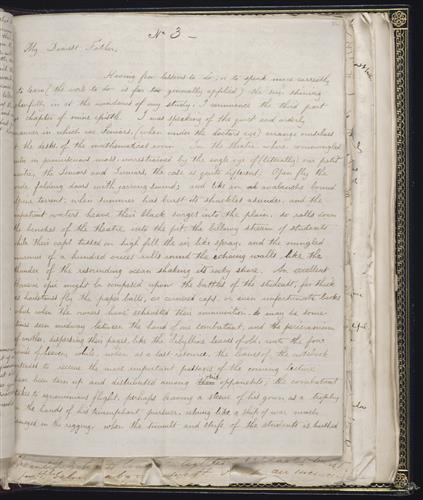 No 3 —
My Dearest Father,
Having few lessons to do; or to speak more correctly
to learn (the work to do is far too generally applied) the sun shining
cheerfully in at the windows of my study; I commence the third part
or chapter of mine epistle. I was speaking of the quiet and orderly
manner in which we Seniors, (when under the doctor's eye) arrange ourselves
at the desks of the mathematical room. In the theatre, where commingled
in promiscuous mass, unrestrained by the eagle eye of (literally) our
the Seniors and Juniors, the case is quite different. Open fly the
wide folding doors with jarring sound; and like an avalanche bound
torrent, when summer has burst its shackles asunder, and the
impatient waters heave their black surges into the plain, so rolls down
the benches of the theatre into the pit, the billowing stream of students
while their caps tossed on high fill the air like spray, and the mingled
murmur of a hundred voices rolls round the echoing walls like the
thunder of the resounding ocean shaking its rocky shore. An excellent
epic might be composed upon the battles of the students, for thick
as hailstones fly the paper balls, or crumpled caps, or even unfortunate books
which when the owners have exhausted their ammunition, may be some-
times seen midway between the hand of one combatant, and the pericranium
of another, dispersing their pages, like the Sibylline leaves of old, unto the four
winds of heaven, while, when as a last resource, the leaves of the notebook
intended to secure the most important passages of the coming lecture
have been torn up and distributed among opponents, the combatant
takes to ignominious flight, perhaps leaving a sleeve of his gown as a trophy
in the hands of his triumphant pursuer, or like a ship of war much
damaged in the rigging, when the tumult and strife of the students is hushed